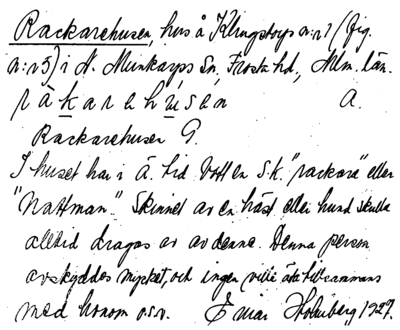 Rackarehusen, hus å Klingstorps n:r 1 (fig.
n:r 5) i N. Munkarps Sn, Frosta hd, Mlm. län.
råkarehúsen A.
Rackarehusen G.
I huset har i Ä. tid bott en s.k. "rackare" eller
"Nattman". Skinnet av en häst eller hund skulle
alltid dragas av av denne. Denna person
avskyddes mycket, och ingen ville äta tillsammans
med honom o.s.v. Einar Holmberg 1927.